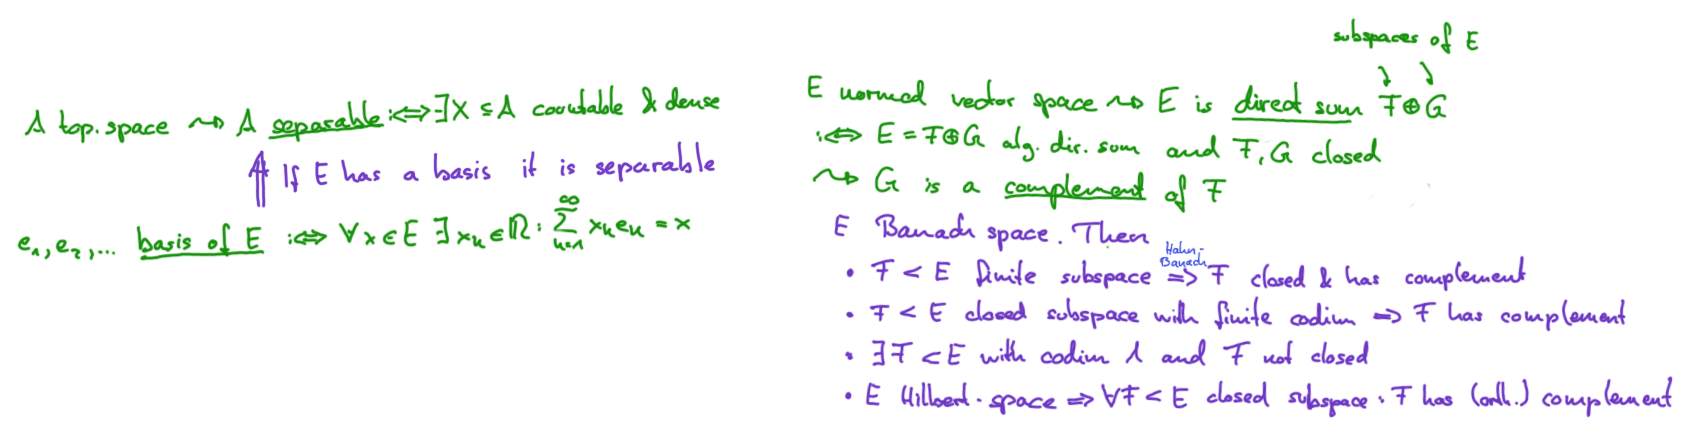 A top. space ⇝ A separable :⇔ ∃ X ⊆ A countable & dense
⇑ If E has a basis it is separable
e₁, e₂, ... basis of E :⇔ ∀x ∈ E ∃ xₙ ∈ ℝ : ∑_{n=1}^{∞} xₙeₙ = x
subspaces of E
E normed vector space ⇝ E is direct sum F ⊕ G
:⇔ E = F ⊕ G alg. dir. sum and F, G closed
⇝ G is a complement of F
E Banach space. Then
Hahn-
Banach
• F < E finite subspace ⇒ F closed & has complement
• F < E closed subspace with finite codim ⇒ F has complement
• ∃ F < E with codim 1 and F not closed
• E Hilbert-space ⇒ ∀F < E closed subspace : F has (orth.) complement